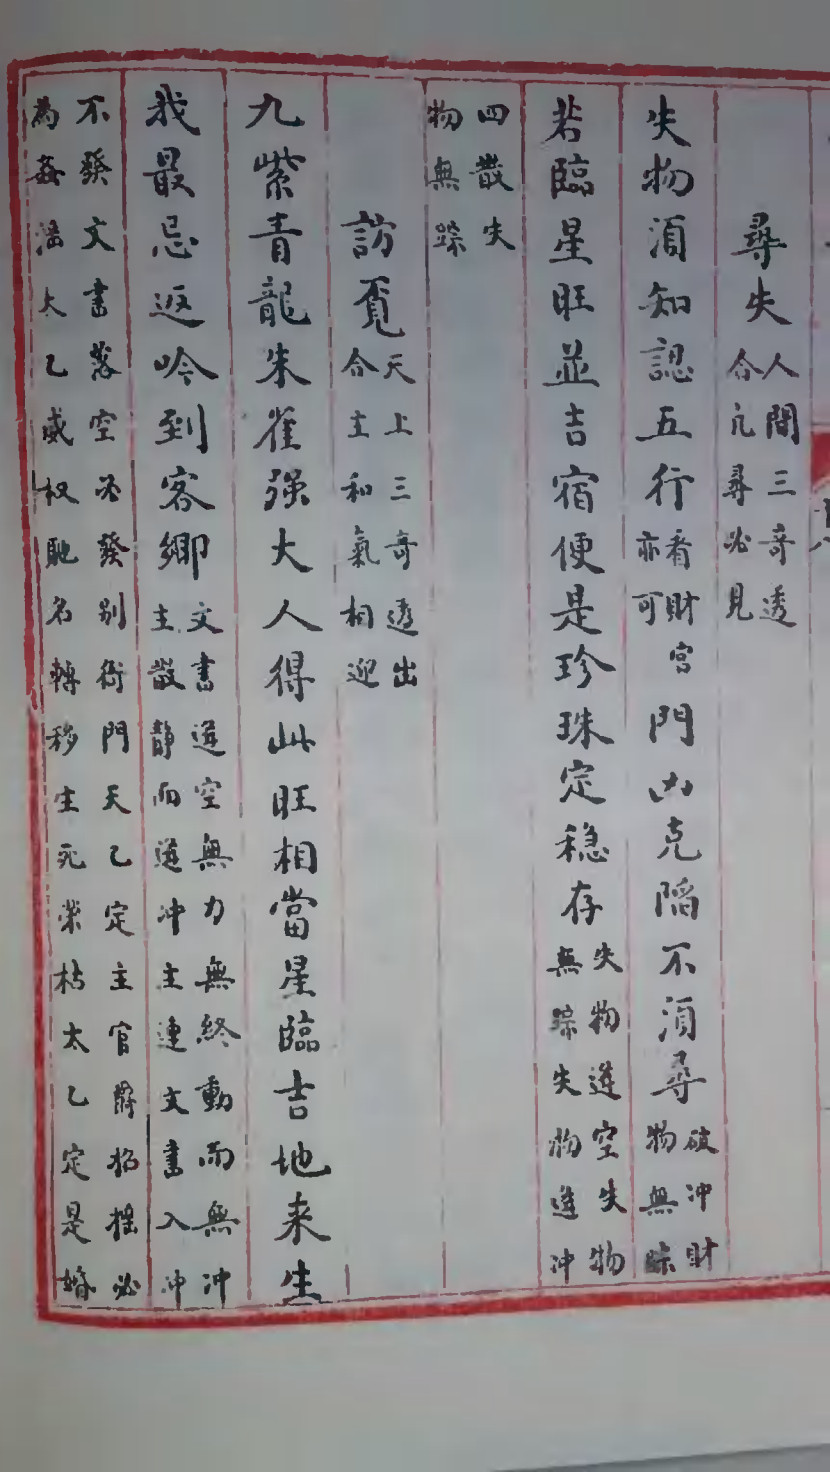 尋失人間三奇透合亢尋必見
失物須知認五行看財宮亦可門凶克陷不須尋破冲財物無踪
若臨星旺並吉宿便是珍珠定穩存失物遂空失物無踪失物遂冲
四散失物無踪
訪覔天上三奇透出合主和氣相迎
九紫青龍朱雀强大人得此旺相當星臨吉地来生
我最忌返吟到客鄉文書遂空無力無終動而無冲主散静而遂冲主連文書入冲
不發文書落空必發别衙門天乙定主官爵招摇必為姦淫太乙威权馳名轉移生死荣枯太乙定是婚